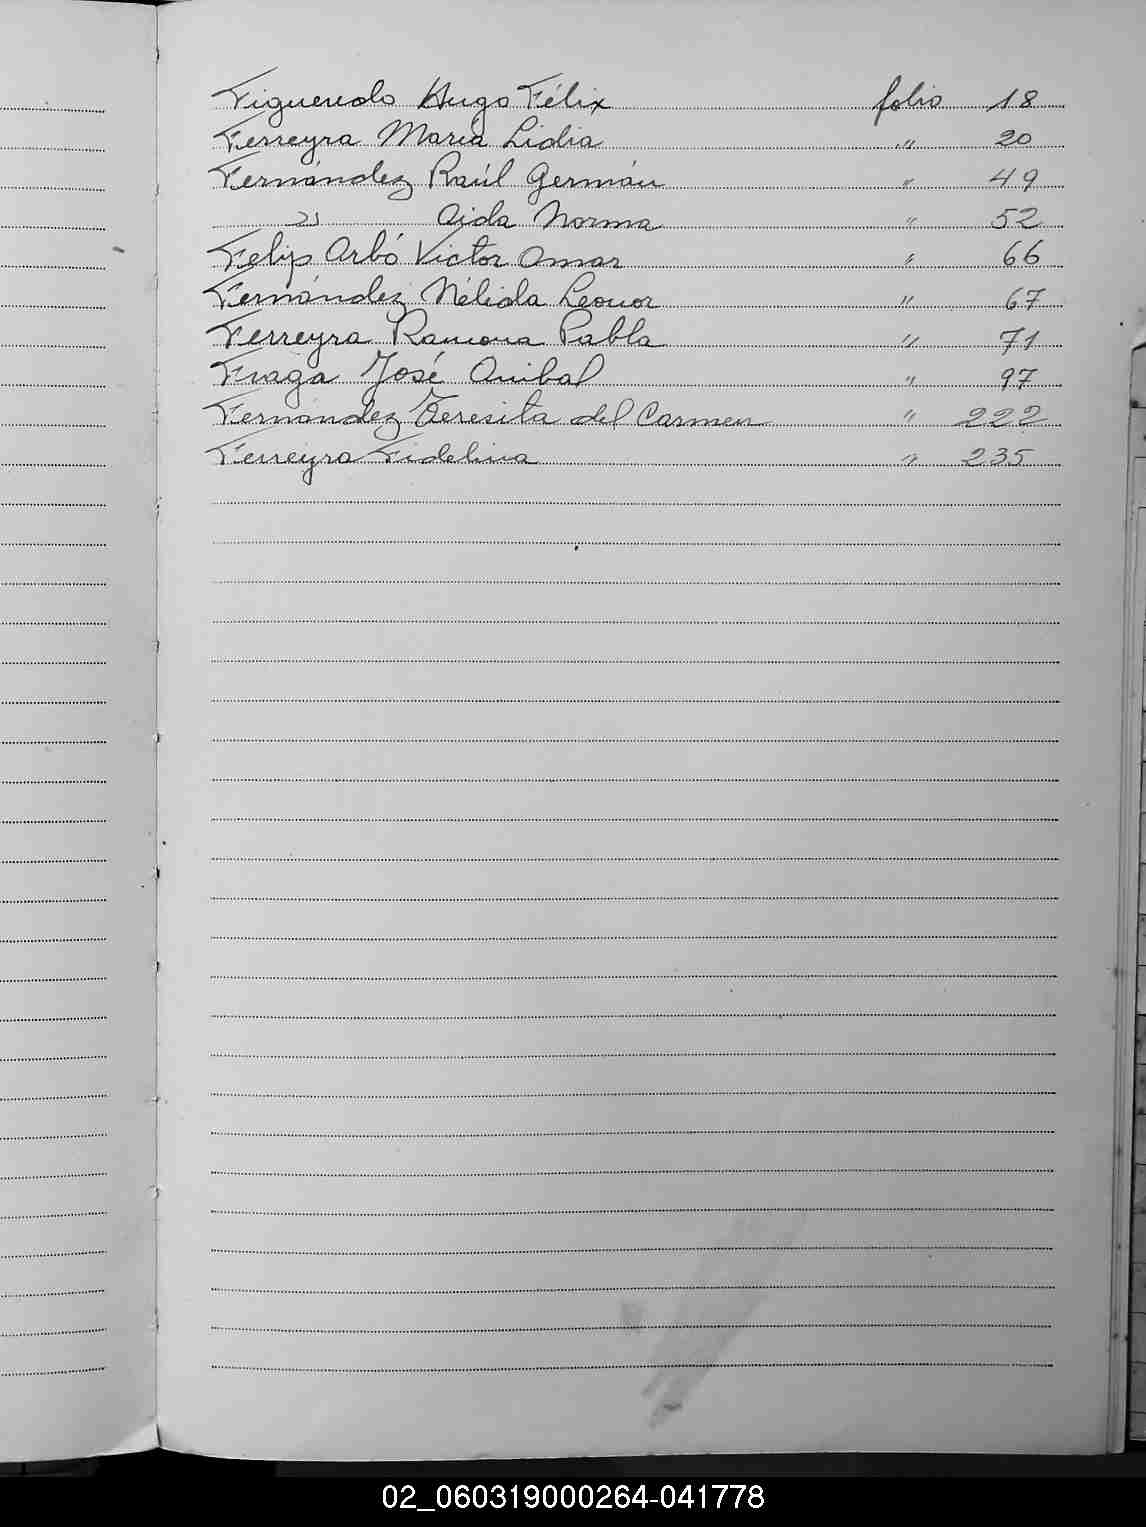 Figueredo Hugo Félix folio 18
Ferreyra María Lidia " 20
Fernández Raúl Germán " 49
" Aida Norma " 52
Felip Arbó Victor Omar " 66
Fernández Nélida Leonor " 67
Ferreyra Ramona Pabla " 71
Fraga José Anibal " 97
Fernández Teresita del Carmen " 222
Ferreyra Fidelina " 235
02_060319000264-041778